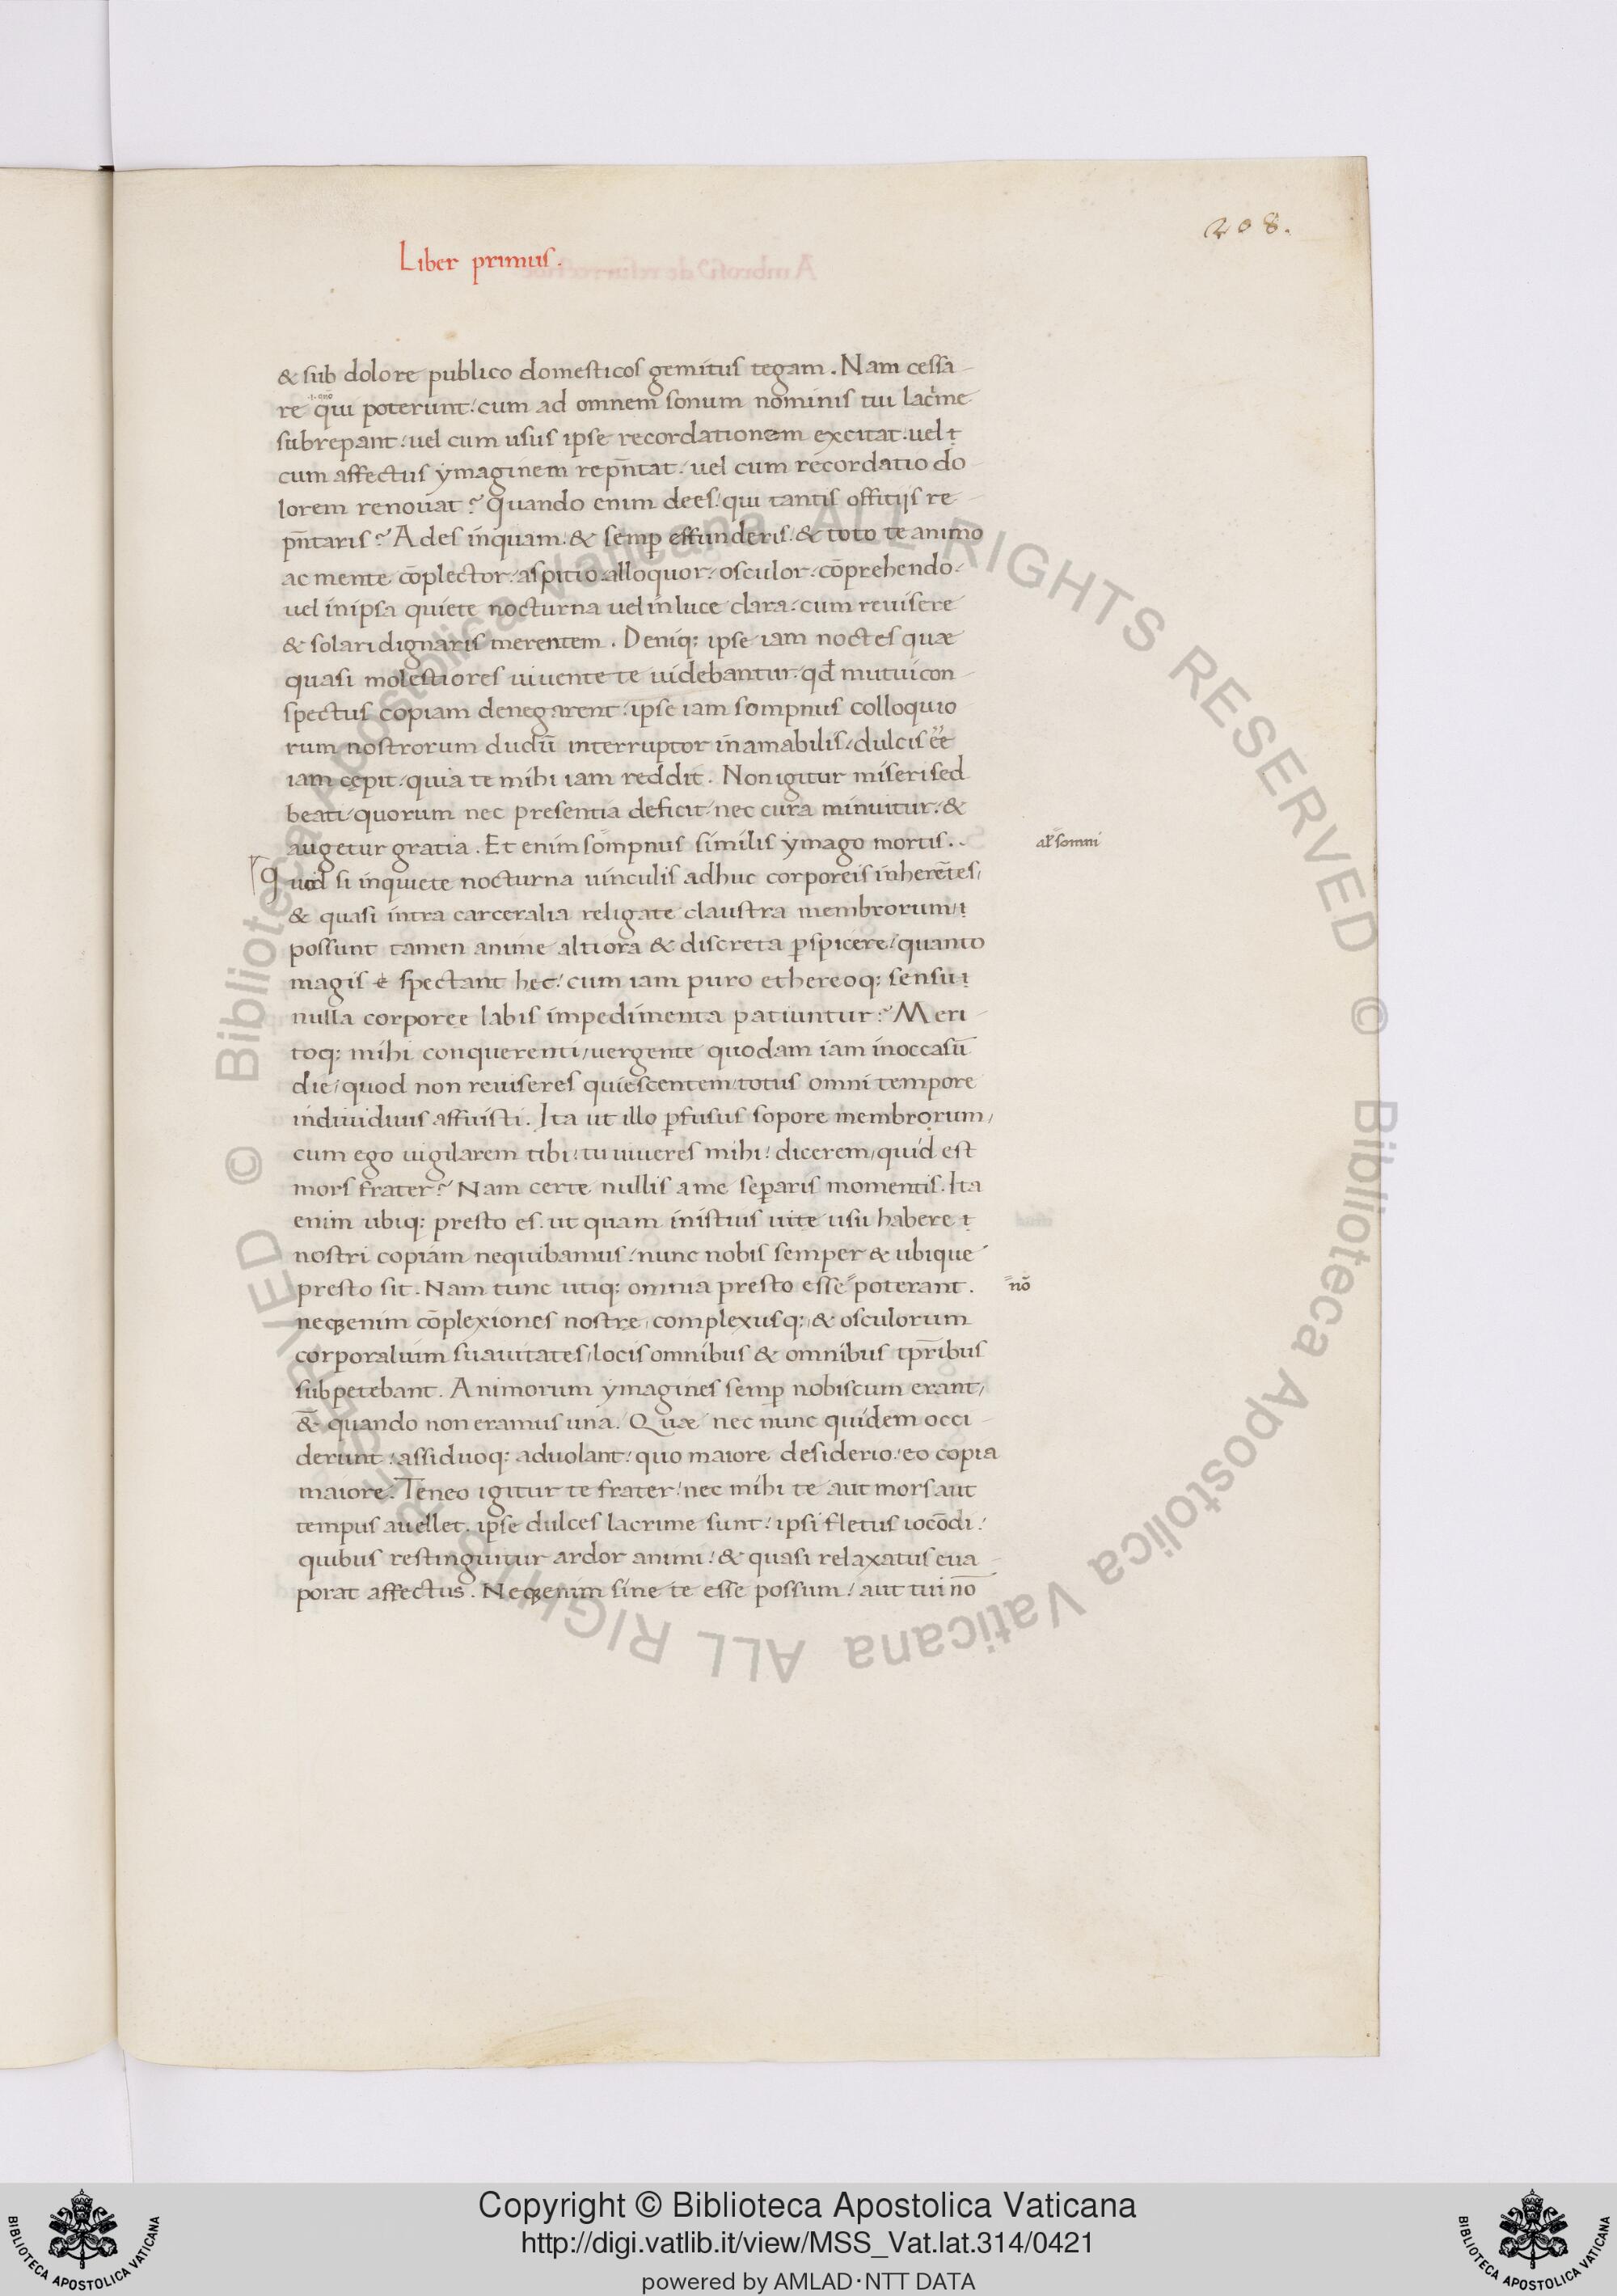 208.
Liber primus.
& sub dolore publico domesticos gemitus tegam. Nam cessa-
re qui poterunt: cum ad omnem sonum nominis tui lacrime
subrepant: uel cum usus ipse recordationem excitat. uel
cum affectus ymaginem repñtat: uel cum recordatio do-
lorem renouat? Quando enim dees: qui tantis offitijs re-
pñtaris? Ades inquam: & semp effunderis: & toto te animo
ac mente cōplector: aspitio: alloquor: osculor: cōprehendo:
uel in ipsa quiete nocturna uel in luce clara: cum reuisere
& solari dignaris merentem. Deniq: ipse iam noctes quæ
quasi molestiores uiuente te uidebantur: qđ mutui con-
spectus copiam denegarent: ipse iam sompnus colloquio
rum nostrorum dudū interruptor inamabilis/ dulcis eē
iam cępit: quia te mihi iam reddit. Non igitur miseri sed
beati/ quorum nec presentia deficit: nec cura minuitur: &
augetur gratia. Et enim sompnus similis ymago mortis.
al' somni
Quod si in quiete nocturna uinculis adhuc corporeis inherētes/
& quasi intra carceralia religate claustra membrorum/
possunt tamen anime altiora & discreta pspicere: quanto
magis e spectant hec: cum iam puro ethereoq: sensu
nulla corporee labis impedimenta patiuntur? Meri-
toq: mihi conquerenti/ uergente quodam iam in occasū
die/ quod non reuiseres quiescentem/ totus omni tempore
indiuiduus affuisti. Ita ut illo pfusus sopore membrorum/
cum ego uigilarem tibi: tu uiueres mihi: dicerem/ quid est
mors frater? Nam certe nullis a me separis momentis. Ita
enim ubiq: presto es. ut quam in istius uite usu habere
nostri copiam nequibamus: nunc nobis semper & ubique
presto sit. Nam tunc utiq: omnia presto esse poterant.
nō
neq enim cōplexiones nostre/ complexusq: & osculorum
corporalium suauitates/ locis omnibus & omnibus tp̄ribus
subpetebant. Animorum ymagines semp nobiscum erant/
& quando non eramus una. Quæ nec nunc quidem occi-
derunt: assiduoq: aduolant: quo maiore desiderio: eo copia
maiore. Teneo igitur te frater: nec mihi te aut mors aut
tempus auellet. ipse dulces lacrime sunt: ipsi fletus iocōdi:
quibus restinguitur ardor animi: & quasi relaxatus eua-
porat affectus. Neq enim sine te esse possum/ aut tui nō
© Biblioteca Apostolica Vaticana ALL RIGHTS RESERVED
© Biblioteca Apostolica Vaticana ALL RIGHTS RESERVED
Copyright © Biblioteca Apostolica Vaticana
http://digi.vatlib.it/view/MSS_Vat.lat.314/0421
powered by AMLAD·NTT DATA
BIBLIOTECA APOSTOLICA VATICANA
BIBLIOTECA APOSTOLICA VATICANA